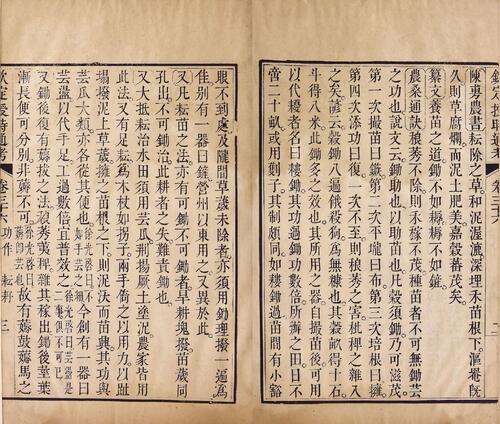 陳旉農書耘除之草和泥渥漉深埋禾苗根下漚罨既
久則草腐爛而泥土肥美嘉穀蕃茂矣
纂文養苗之道鋤不如耨耨不如鏟
農桑通訣稂莠不除則禾稼不茂種苗者不可無鋤芸
之功也說文云鋤助也以助苗也凡穀須鋤乃可滋茂
第一次撮苗曰鏃第二次平壠曰布第三次培根曰擁
第四次添功曰復一次不至則稂莠之害秕稗之雜入
之矣諺云鋤八遍餓殺狗爲無糠也其穀畝得十石
斗得八米此鋤多之效也其所用之器自撮苗後可用
以代耰者名曰耬鋤其功過鋤功數倍所辦之田日不
啻二十畝或用劐子其制頗同如耬鋤過苗間有小豁
眼不到處及壠間草薉未除者亦須用鋤理撥一遍爲
佳別有一器曰鏟營州以東用之又異於此
又凡耘苗之法亦有可鋤不可鋤者早耕塊撥苗薉同
孔出不可鋤治此耕者之失難責鋤也
又大抵耘治水田須用芸爪荆揚厥土塗泥農家皆用
此法又有足耘爲木杖如拐子兩手倚之以用力以趾
塌撥泥上草薉擁之苗根之下則泥沃而苗興其功與
芸爪大類亦各從其便也徐光啓曰不如手芸之細今創有一器曰
芸盪以代手足工過數倍宜普效之徐光啓曰芸盪是二事俱不可已
又鋤後復有薅拔之法稂莠荑稗雜其稼出鋤後莖葉
漸長便可分別非薅不可徐光啓曰薅卽芸也故有薅鼓薅馬之
欽定授時通考 卷三十六 功作 耘耔 三